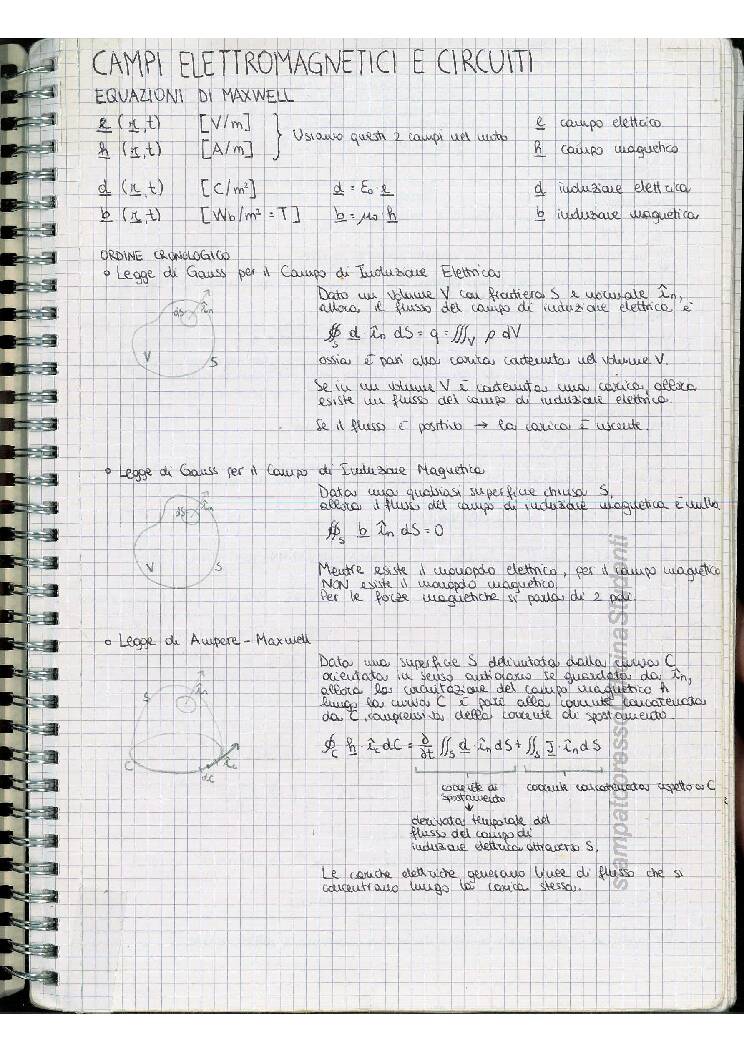 CAMPI ELETTROMAGNETICI E CIRCUITI
EQUAZIONI DI MAXWELL
e (r,t) [V/m] } Usiamo questi 2 campi nel vuoto e campo elettrico
h (r,t) [A/m] h campo magnetico
d (r,t) [C/m²] d = ε₀ e d induzione elettrica
b (r,t) [Wb/m² = T] b = μ₀ h b induzione magnetica
ORDINE CRONOLOGICO
o Legge di Gauss per il Campo di Induzione Elettrica
dS în
V S
Dato un volume V con frontiera S e normale în,
allora il flusso del campo di induzione elettrica è
∯S d în dS = q = ∭V ρ dV
ossia è pari alla carica contenuta nel volume V.
Se in un volume V è contenuta una carica, allora
esiste un flusso del campo di induzione elettrica.
Se il flusso è positivo → la carica è uscente.
o Legge di Gauss per il Campo di Induzione Magnetica
dS în
V S
Data una qualsiasi superficie chiusa S,
allora il flusso del campo di induzione magnetica è nullo.
∯S b în dS = 0
Mentre esiste il monopolo elettrico, per il campo magnetico
NON esiste il monopolo magnetico.
Per le forze magnetiche si parla di 2 poli.
o Legge di Ampere-Maxwell
S în
C dC îc
Data una superficie S delimitata dalla curva C
orientata in senso antiorario se guardata da în,
allora la circuitazione del campo magnetico h
lungo la curva C è pari alla corrente concatenata
da C, comprensiva della corrente di spostamento.
∮C h · îc dC = ∂/∂t ∬S d · în dS + ∬S J · în dS
corrente di spostamento corrente concatenata rispetto a C
↓
derivata temporale del
flusso del campo di
induzione elettrica attraverso S.
Le cariche elettriche generano linee di flusso che si
concentrano lungo la carica stessa.
stampatopresso
inaStudenti